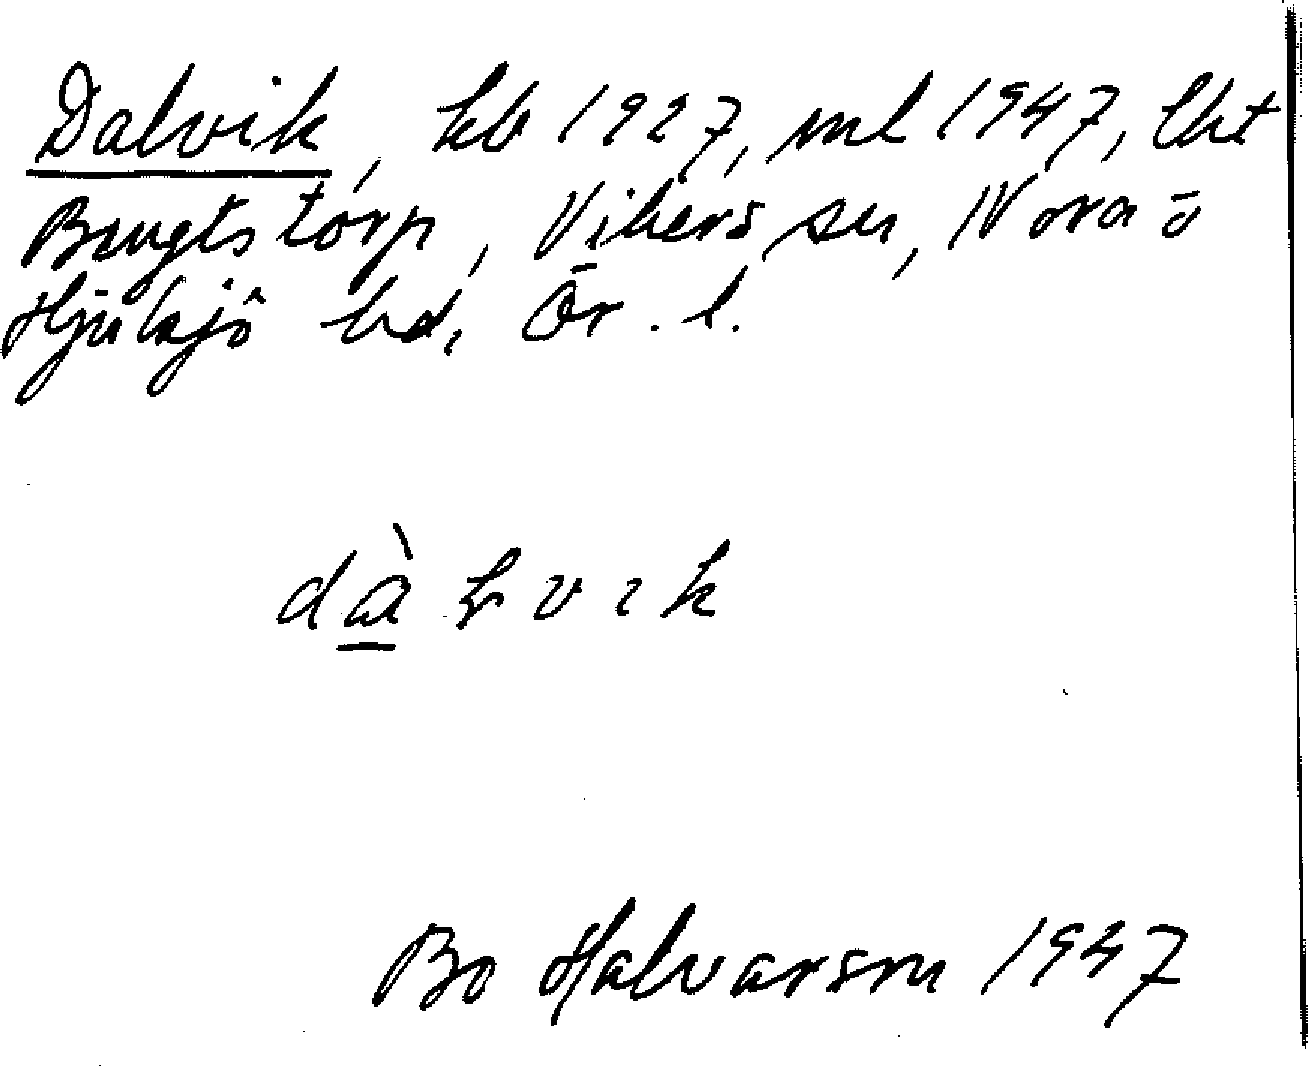 Dalvik, kb 1927, ml 1947, lht
Bengtstorp, Vikers sn, Nora o
Hjulsjö bd, Ör. l.
dàlvik
Bo Halvarson 1947